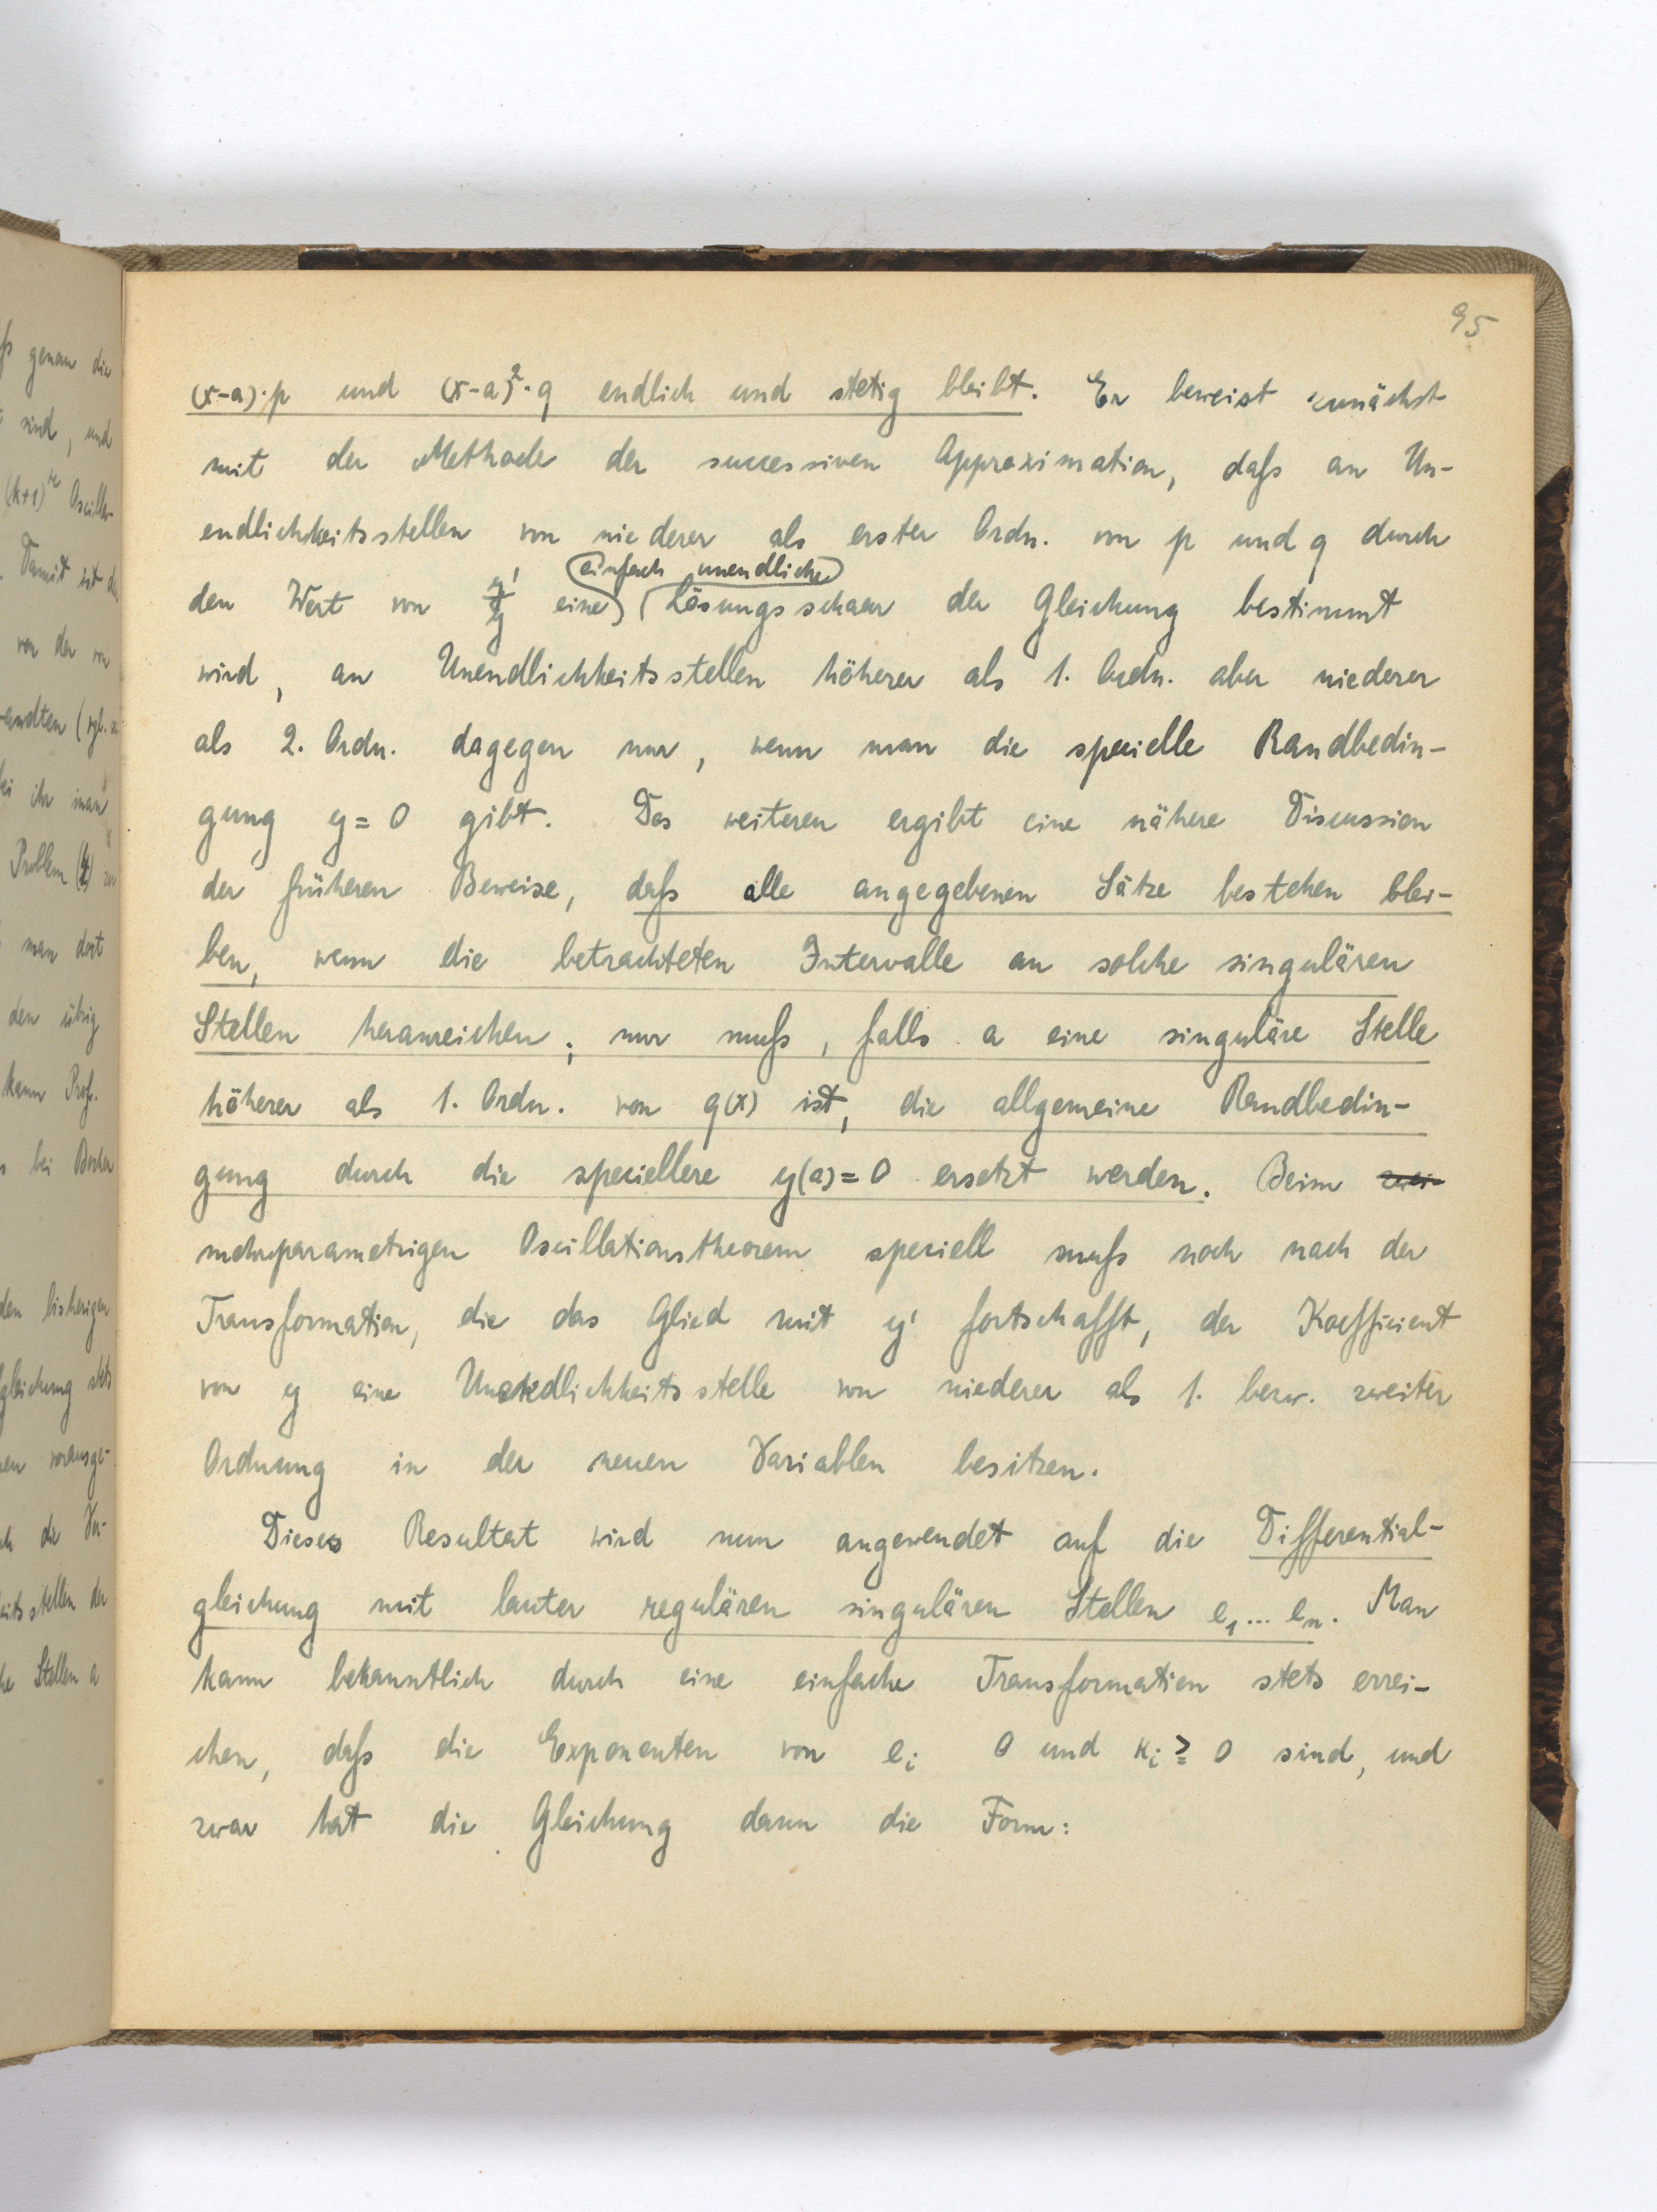 95
(x-a)·p und (x-a)²·q endlich und stetig bleibt. Er beweist zunächst
mit der Methode der successiven Approximation, daſs an Un-
endlichkeitsstellen von niederer als erster Ordn. von p und q durch
einfach unendliche
den Wert von y eine Lösungsschaar der Gleichung bestimmt
wird, an Unendlichkeitsstellen höherer als 1. Ordn. aber niederer
als 2. Ordn. dagegen nur, wenn man die specielle Randbedin-
gung y=0 gibt. Des weiteren ergibt eine nähere Discussion
der früheren Beweise, daſs alle angegebenen Sätze bestehen blei-
ben, wenn die betrachteten Intervalle an solche singulären
Stellen heranreichen; nur muſs, falls a eine singuläre Stelle
höherer als 1. Ordn. von q(x) ist, die allgemeine Randbedin-
gung durch die speciellere y(a)=0 ersetzt werden. Beim zwei-
mehrparametrigen Oscillationstheorem speciell muſs noch nach der
Transformation, die das Glied mit y' fortschafft, der Koefficient
von y eine Unendlichkeitsstelle von niederer als 1. bezw. zweiter
Ordnung in der neuen Variablen besitzen.
Dieses Resultat wird nun angewendet auf die Differential-
gleichung mit lauter regulären singulären Stellen e₁... eₙ. Man
kann bekanntlich durch eine einfache Transformation stets errei-
chen, daſs die Exponenten von eᵢ 0 und κᵢ ≧ 0 sind, und
zwar hat die Gleichung dann die Form:
genau die
sind, und
(k+1)te Oscilla-
Damit ist
von der von
wandten (vgl.
man
Problem
man dort
den übrig
kann Prof.
bei Bôcher
den bisherigen
gleichung stets
vorausge-
die
stellen der
Stellen a